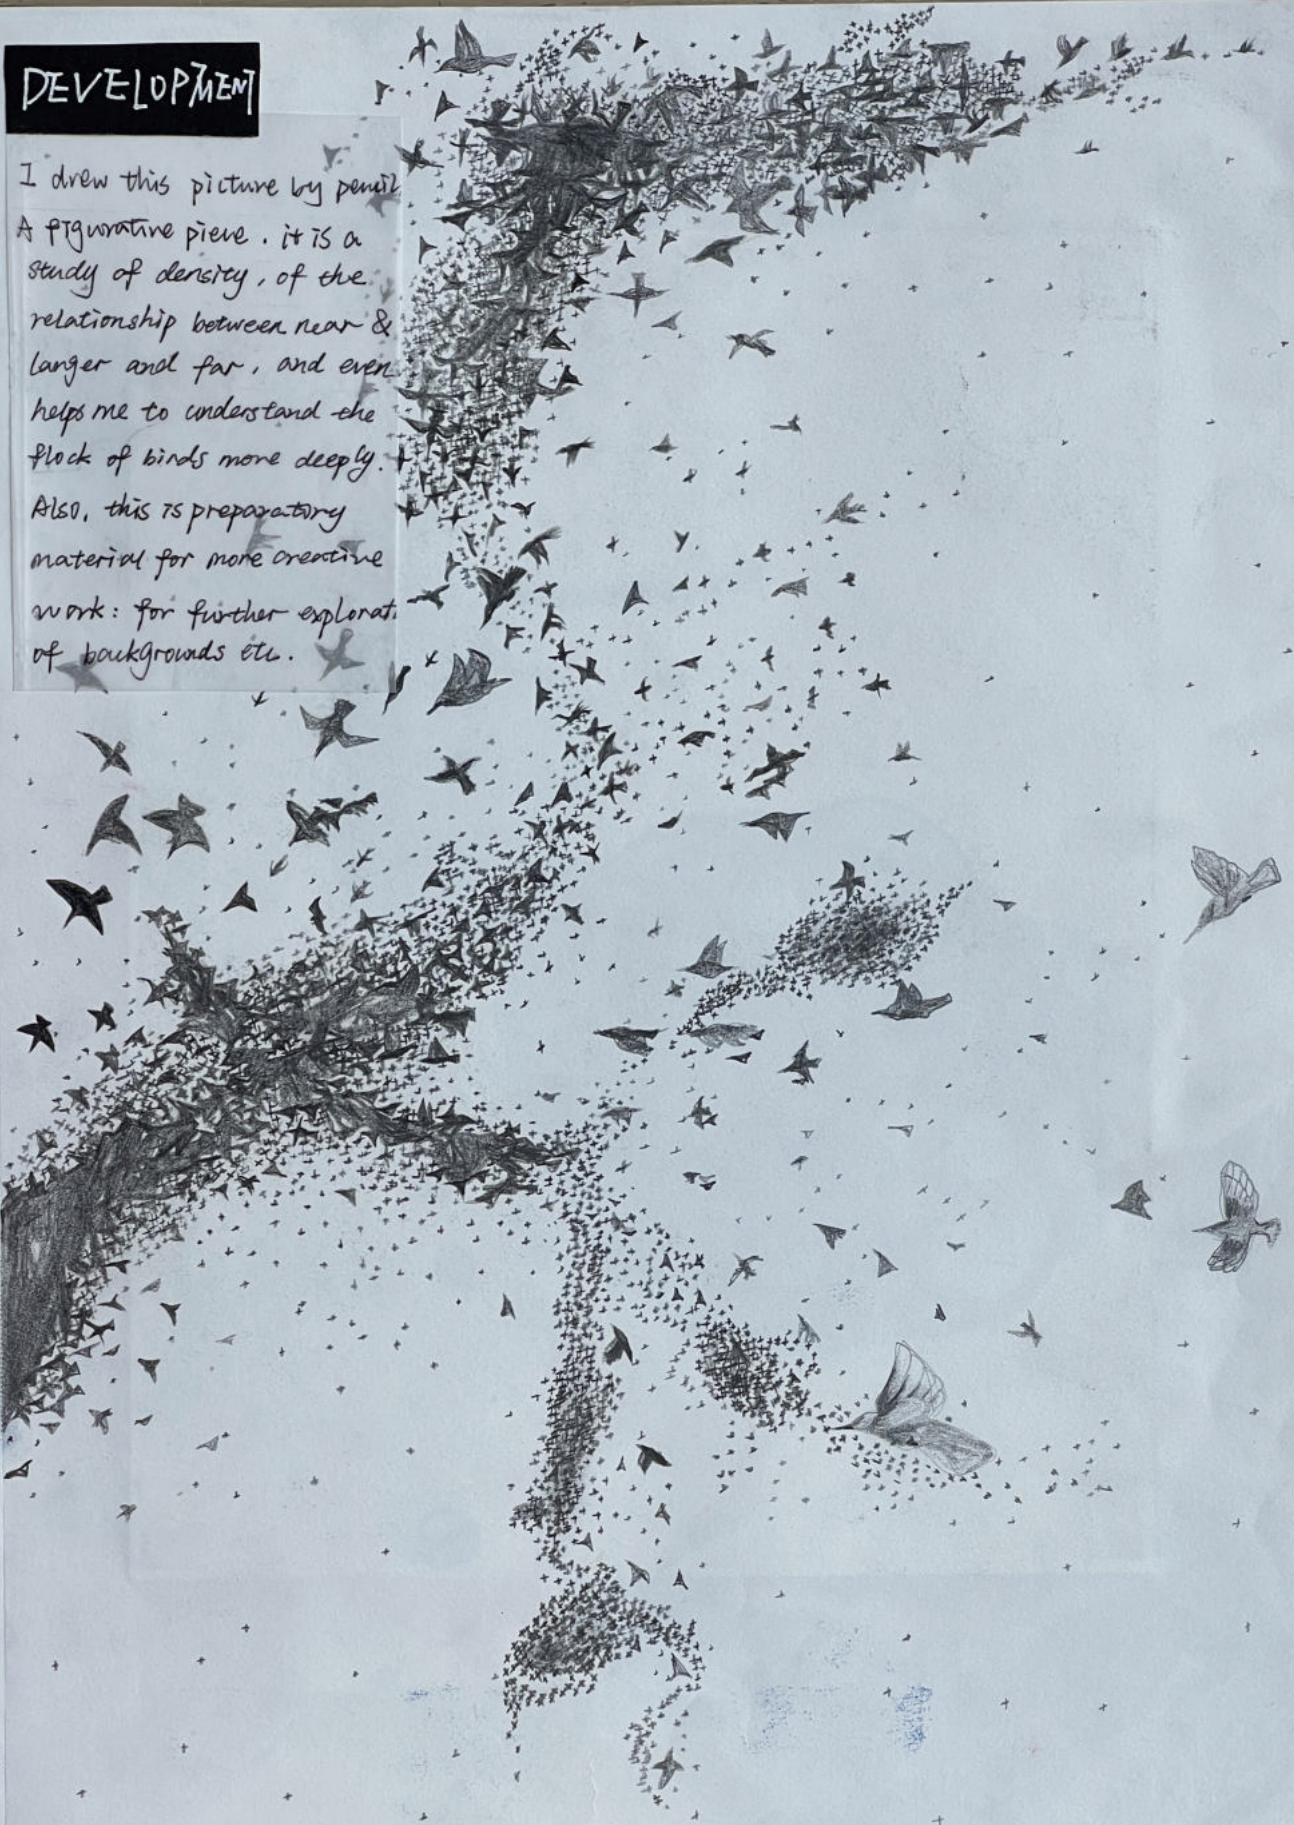 DEVELOPMENT
I drew this picture by pencil
A figurative piece. it is a
study of density, of the
relationship between near &
larger and far, and even
helps me to understand the
flock of birds more deeply.
Also, this is preparatory
material for more creative
work: for further explorati
of backgrounds etc.